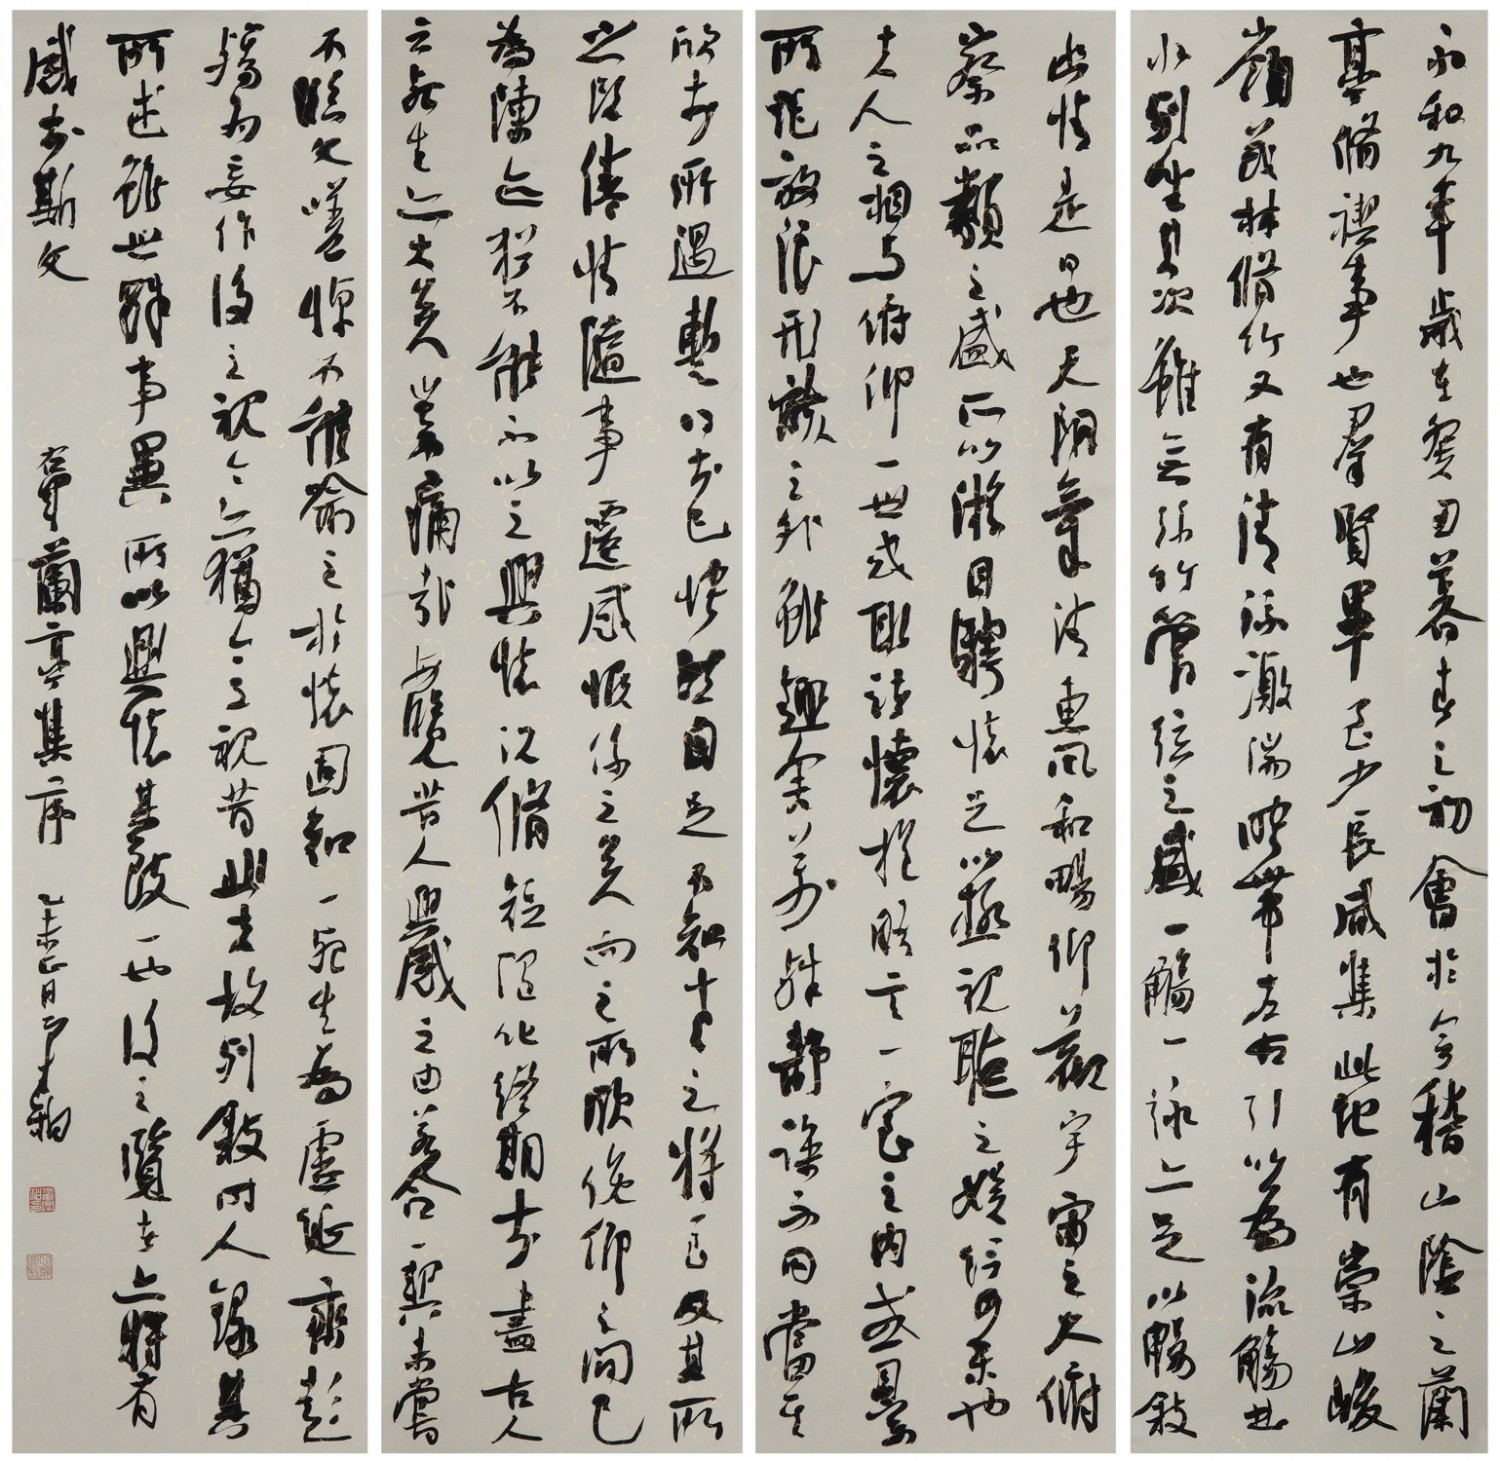 永和九年歲在癸丑暮春之初會於會稽山陰之蘭
亭脩禊事也羣賢畢至少長咸集此地有崇山峻
嶺茂林脩竹又有清流激湍映帶左右引以為流觴曲
水列坐其次雖無絲竹管弦之盛一觴一詠亦足以暢敘
幽情是日也天朗氣清惠風和暢仰觀宇宙之大俯
察品類之盛所以遊目騁懷足以極視聽之娛信可樂也
夫人之相與俯仰一世或取諸懷抱晤言一室之內或因寄
所託放浪形骸之外雖趣舍萬殊靜躁不同當其
欣於所遇暫得於己怏然自足不知老之將至及其所
之既倦情隨事遷感慨係之矣向之所欣俛仰之間已
為陳迹猶不能不以之興懷況脩短隨化終期於盡古人
云死生亦大矣豈不痛哉每覽昔人興感之由若合一契未嘗
不臨文嗟悼不能喻之於懷固知一死生為虛誕齊彭
殤為妄作後之視今亦猶今之視昔悲夫故列敘時人錄其
所述雖世殊事異所以興懷其致一也後之覽者亦將有
感於斯文 右軍蘭亭集序 乙未正月